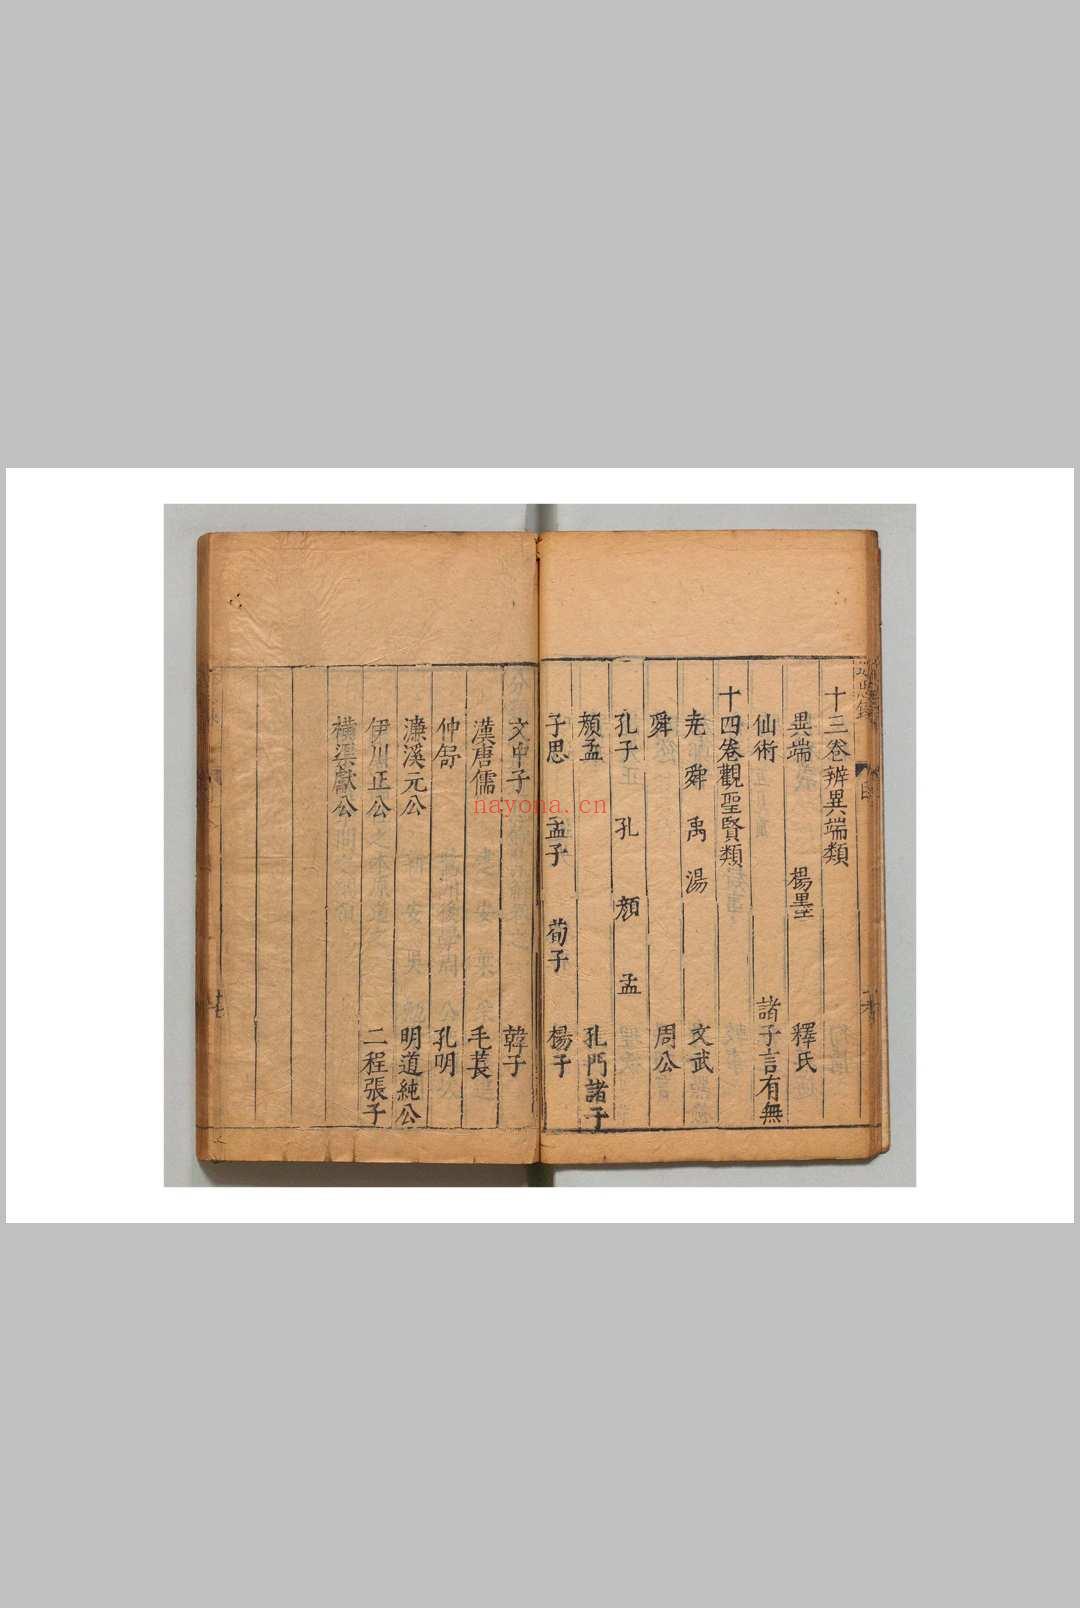 十三卷辨異端類
異端 楊墨 釋氏
仙術 諸子言有無
十四卷觀聖賢類
尭舜禹湯 文武
舜 周公
孔子 孔顔孟
顔孟 孔門諸子
子思 孟子 荀子 楊子
文中子 韓子
漢唐儒 毛萇
仲舒 孔明
濂溪元公 明道純公
伊川正公 二程張子
橫渠獻公
nayona.cn